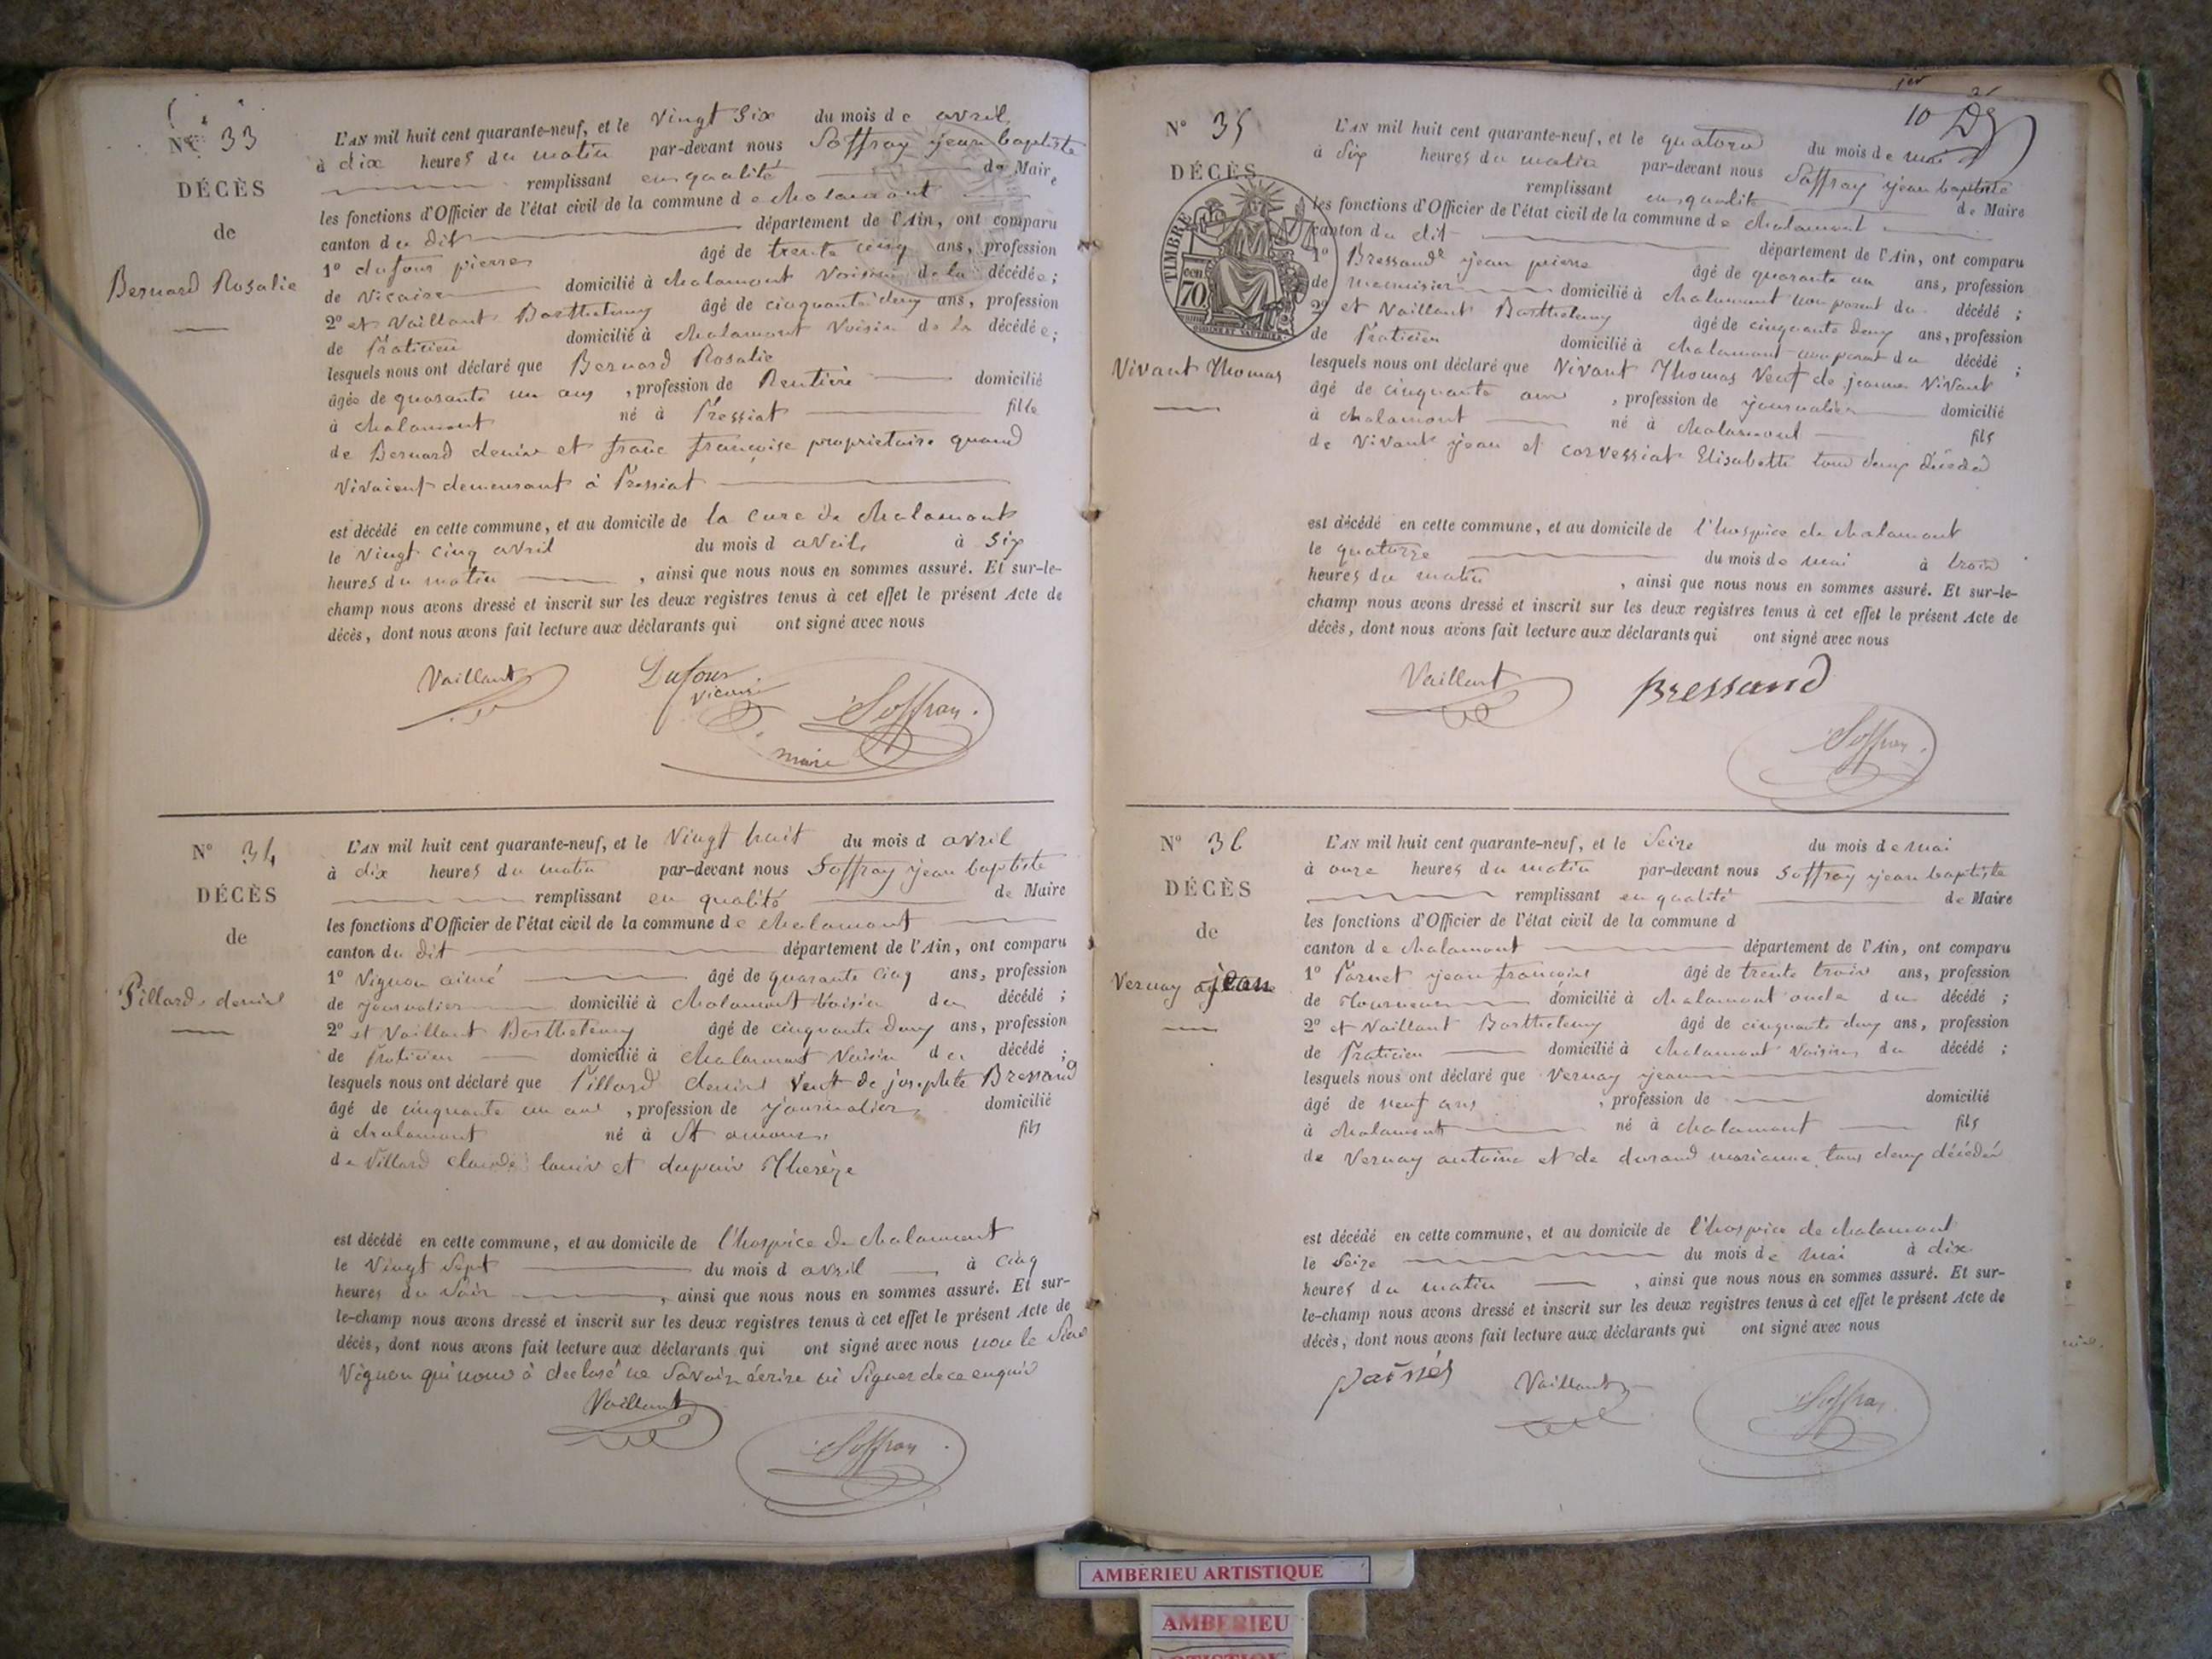 N° 33
DÉCÈS
de
Bernard Rosalie
L'AN mil huit cent quarante-neuf, et le vingt six du mois de avril
à dix heures du matin par-devant nous Soffray jean baptiste
remplissant en qualité de Maire
les fonctions d'Officier de l'état civil de la commune de chalamont
canton du dit département de l'Ain, ont comparu
1° dufour pierre âgé de trente cinq ans, profession
de vicaire domicilié à chalamont Voisin de la décédée;
2° et Vaillant Barthelemy âgé de cinquante deux ans, profession
de Praticien domicilié à chalamont Voisin de la décédée;
lesquels nous ont déclaré que Bernard Rosalie
âgée de quarante un ans, profession de Rentière domicilié
à chalamont né à Pressiat fille
de Bernard denis et franc françoise proprietaire quand
vivaient demeurant à Pressiat
est décédé en cette commune, et au domicile de la cure de chalamont
le vingt cinq avril du mois d avril à six
heures du matin, ainsi que nous nous en sommes assuré. Et sur-le-
champ nous avons dressé et inscrit sur les deux registres tenus à cet effet le présent Acte de
décès, dont nous avons fait lecture aux déclarants qui ont signé avec nous
Vaillant Dufour
vicaire
Soffray
maire
N° 34
DÉCÈS
de
Pillard denis
L'AN mil huit cent quarante-neuf, et le vingt huit du mois d avril
à dix heures du matin par-devant nous Soffray jean baptiste
remplissant en qualité de Maire
les fonctions d'Officier de l'état civil de la commune de chalamont
canton du dit département de l'Ain, ont comparu
1° Vignon aimé âgé de quarante cinq ans, profession
de journalier domicilié à chalamont voisin du décédé;
2° et Vaillant Barthelemy âgé de cinquante deux ans, profession
de Praticien domicilié à chalamont Voisin du décédé;
lesquels nous ont déclaré que Pillard denis veuf de josephte Bressand
âgé de cinquante un ans, profession de journalier domicilié
à chalamont né à St amour fils
de Pillard claude louis et dupuis Therèze
est décédé en cette commune, et au domicile de l'hospice de chalamont
le vingt sept du mois d avril à cinq
heures du soir, ainsi que nous nous en sommes assuré. Et sur-
le-champ nous avons dressé et inscrit sur les deux registres tenus à cet effet le présent Acte de
décès, dont nous avons fait lecture aux déclarants qui ont signé avec nous non le
Vignon qui nous à declaré ne savoir écrire ni signer de ce enquis
Vaillant
Soffray
10
N° 35
DÉCÈS
TIMBRE
70
Vivant Thomas
L'AN mil huit cent quarante-neuf, et le quatorze du mois de mai
à six heures du matin par-devant nous Soffray jean baptiste
remplissant en qualité de Maire
les fonctions d'Officier de l'état civil de la commune de chalamont
canton du dit département de l'Ain, ont comparu
1° Bressand jean pierre âgé de quarante un ans, profession
de menuisier domicilié à chalamont non parent du décédé;
2° et Vaillant Barthelemy âgé de cinquante deux ans, profession
de Praticien domicilié à chalamont non parent du décédé;
lesquels nous ont déclaré que Vivant Thomas Veuf de jeanne Vivant
âgé de cinquante ans, profession de journalier domicilié
à chalamont né à chalamont fils
de Vivant jean et corvessiat Elisabeth tous deux décédés
est décédé en cette commune, et au domicile de l'hospice de chalamont
le quatorze du mois de mai à trois
heures du matin, ainsi que nous nous en sommes assuré. Et sur-le-
champ nous avons dressé et inscrit sur les deux registres tenus à cet effet le présent Acte de
décès, dont nous avons fait lecture aux déclarants qui ont signé avec nous
Vaillant Bressand
Soffray
N° 36
DÉCÈS
de
Vernay jean
L'AN mil huit cent quarante-neuf, et le Seize du mois de mai
à onze heures du matin par-devant nous Soffray jean baptiste
remplissant en qualité de Maire
les fonctions d'Officier de l'état civil de la commune d
canton de chalamont département de l'Ain, ont comparu
1° Parnet jean françois âgé de trente trois ans, profession
de Tourneur domicilié à chalamont oncle du décédé;
2° et Vaillant Barthelemy âgé de cinquante deux ans, profession
de Praticien domicilié à chalamont Voisin du décédé;
lesquels nous ont déclaré que Vernay jean
âgé de neuf ans, profession de domicilié
à chalamont né à chalamont fils
de Vernay antoine et de durand marianne tous deux décédés
est décédé en cette commune, et au domicile de l'hospice de chalamont
le Seize du mois de mai à dix
heures du matin, ainsi que nous nous en sommes assuré. Et sur-
le-champ nous avons dressé et inscrit sur les deux registres tenus à cet effet le présent Acte de
décès, dont nous avons fait lecture aux déclarants qui ont signé avec nous
Vaillant
Soffray
AMBERIEU ARTISTIQUE
AMBERIEU